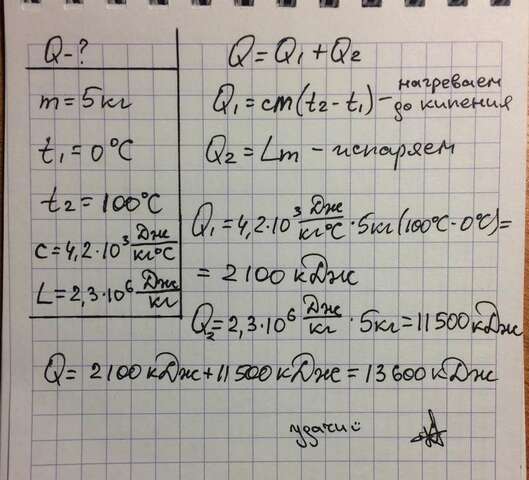 Q-?
m = 5кг
t₁ = 0°C
t₂ = 100°C
c = 4,2·10³ Дж/кг°C
L = 2,3·10⁶ Дж/кг
Q = Q₁ + Q₂
Q₁ = cm(t₂ - t₁) - нагреваем до кипения
Q₂ = Lm - испаряем
Q₁ = 4,2·10³ Дж/кг°C · 5кг (100°C - 0°C) =
= 2100 кДж
Q₂ = 2,3·10⁶ Дж/кг · 5кг = 11500 кДж
Q = 2100 кДж + 11500 кДж = 13600 кДж
удачи